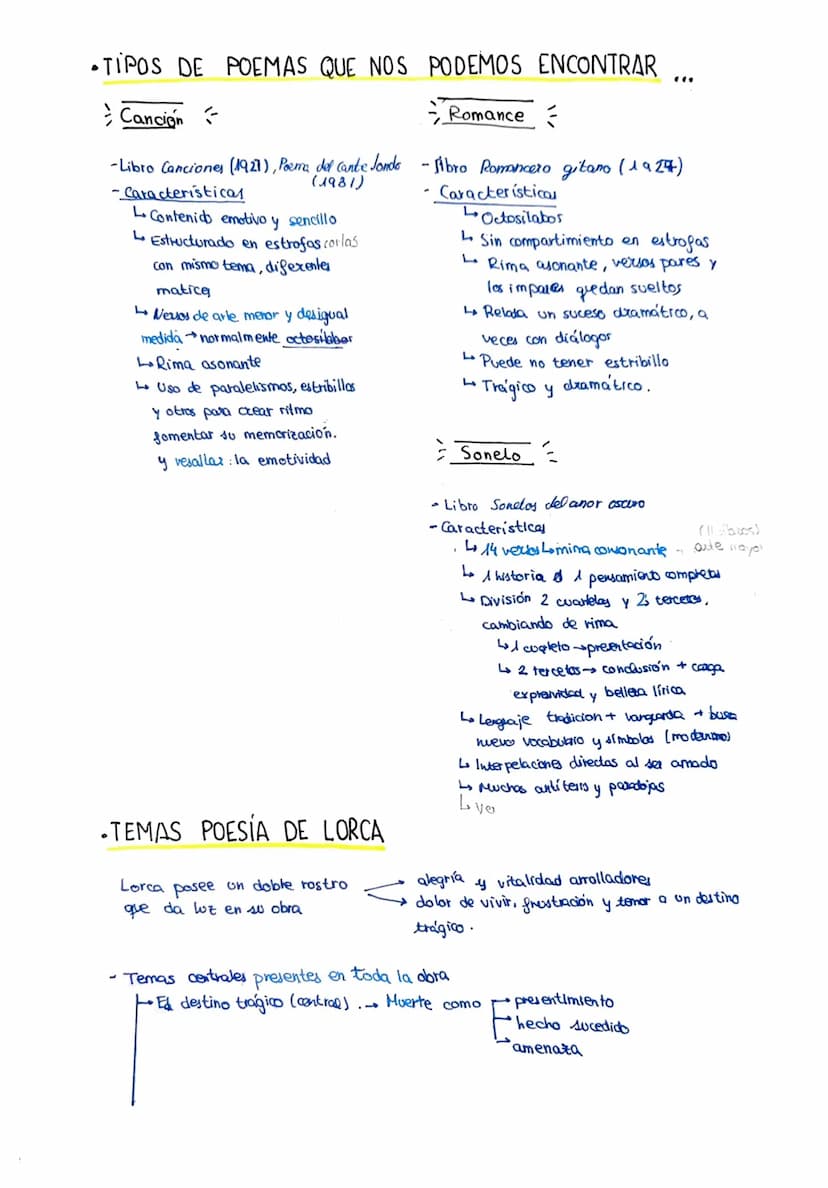 •TIPOS DE POEMAS QUE NOS PODEMOS ENCONTRAR ...
Canción
-Libro Canciones (1921), Poema del Cante Jondo
(1931)
- Características
↳ Contenido emotivo y sencillo
↳ Estructurado en estrofas cortas
con mismo tema, diferentes
matices
↳ Versos de arte menor y desigual
medida → normalmente octosílabos
↳ Rima asonante
↳ Uso de paralelismos, estribillos
y otros para crear ritmo
fomentar su memorización.
y resaltar: la emotividad
Romance
- libro Romancero gitano (1927)
- Características
↳ Octosílabos
↳ Sin compartimiento en estrofas
↳ Rima asonante, versos pares y
los impares quedan sueltos
↳ Relata un suceso dramático, a
veces con diálogos
↳ Puede no tener estribillo
↳ Trágico y dramático.
Soneto
- Libro Sonetos del amor oscuro
- Características
↳ 14 versos consonante arte mayor
↳ 1 historia 1 pensamiento completo
↳ División 2 cuartetos y 2 tercetos,
cambiando de rima
↳ 1 cuarteto → presentación
↳ 2 tercetos → conclusión + carga
expresividad y belleza lírica
↳ Lenguaje tradicion + vanguardia + busca
nuevo vocabulario y símbolos (modernismo)
↳ Interpelaciones directas al ser amado
↳ Muchas antítesis y paradojas
↳ Ve
•TEMAS POESÍA DE LORCA
Lorca posee un doble rostro
que da luz en su obra
→ alegría y vitalidad arrolladores
→ dolor de vivir, frustración y temor a un destino
trágico.
- Temas centrales presentes en toda la obra
→ El destino trágico (central). → Muerte como
→ presentimiento
→ hecho sucedido
→ amenaza